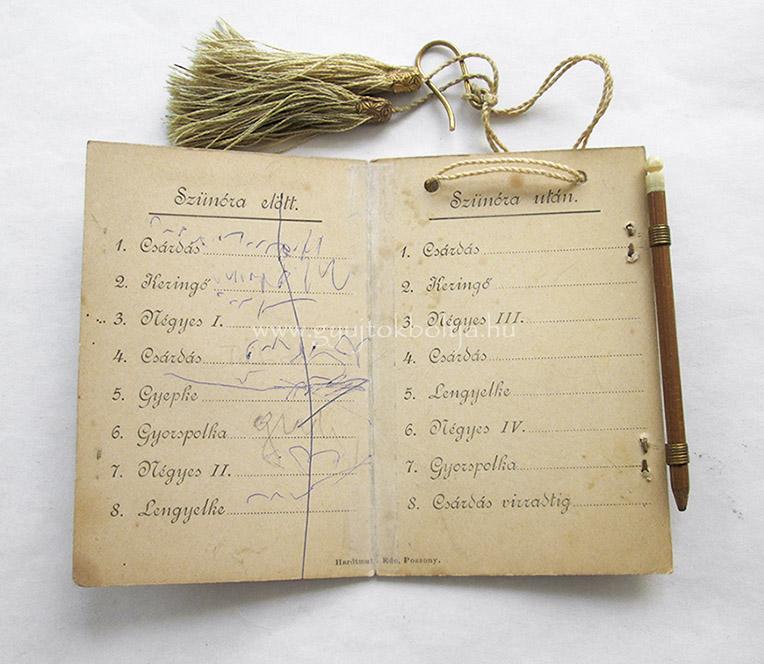 Szünóra előtt.
1. Csárdás
2. Keringő
3. Négyes I.
4. Csárdás
5. Gyepke
6. Gyorspolka
7. Négyes II.
8. Lengyelke
Szünóra után.
1. Csárdás
2. Keringő
3. Négyes III.
4. Csárdás
5. Lengyelke
6. Négyes IV.
7. Gyorspolka
8. Csárdás virradtig
Ede, Pozsony.
www.gyujtokboltja.hu